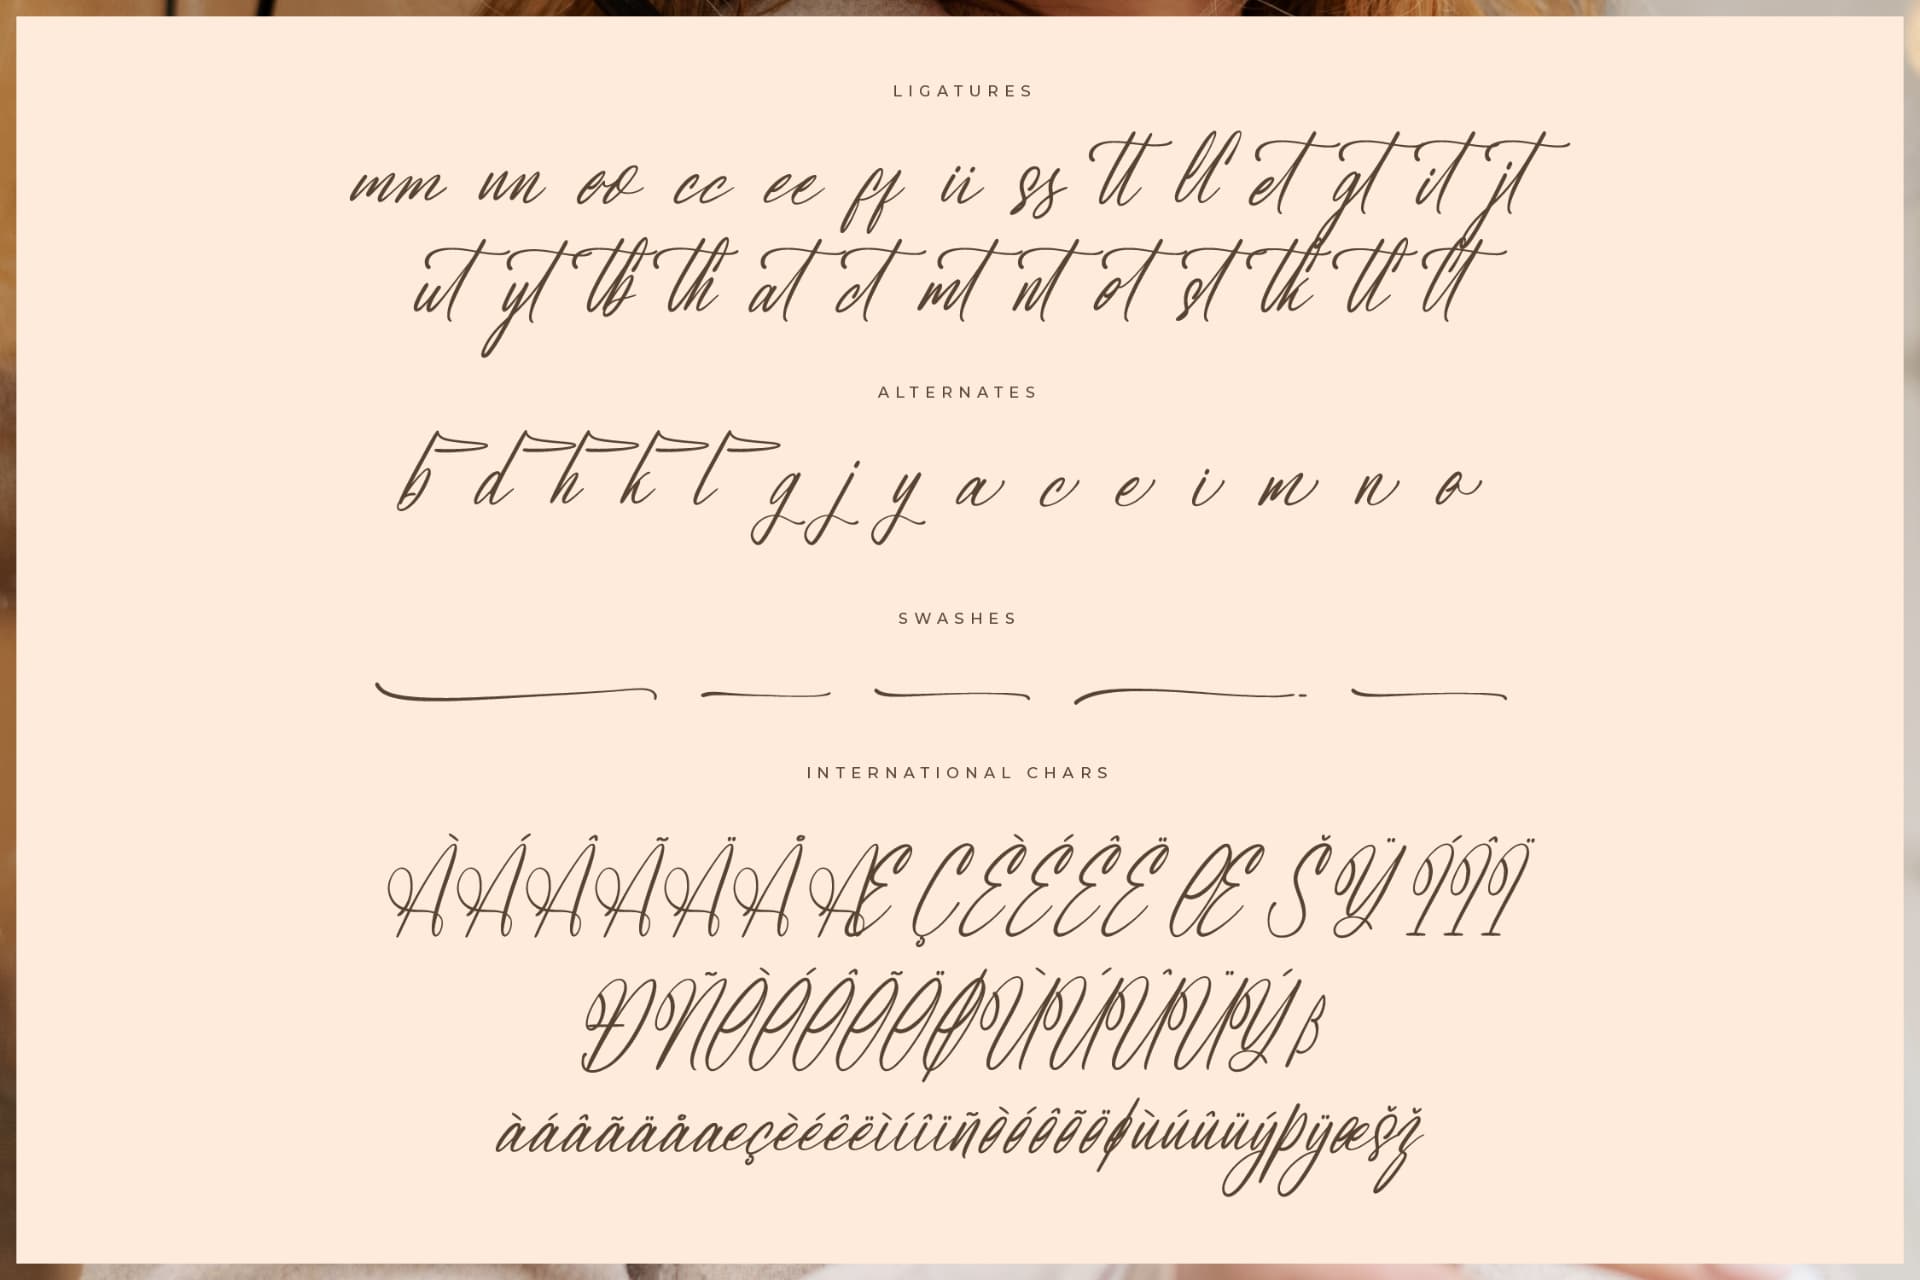 LIGATURES
mm nn oo cc ee ff ii ss tt ll et gt it jt
ut yt tb th at ct mt nt ot st tk tl lt
ALTERNATES
b d h k l g j y a c e i m n o
SWASHES
INTERNATIONAL CHARS
ÀÁÂÃÄÅÆÇÈÉÊËŒŠŸÍÎÏ
ÐÑÒÓÔÕÖØÙÚÛÜÝß
àáâãäåæçèéêëìíîïñòóôõöøùúûüýþÿœšž